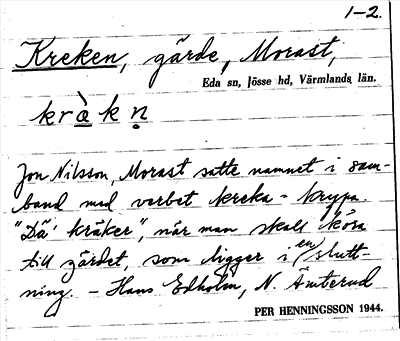 1-2.
Kreken, gärde, Morast,
Eda sn, Jösse hd, Värmlands län.
krằkn̥
Jon Nilsson, Morast satte namnet i sam-
band med verbet kreka - krypa.
"Dä' kräker", när man skall köra
till gärdet, som ligger i en slutt-
ning. - Hans Edholm, N. Ämterud
PER HENNINGSSON 1944.